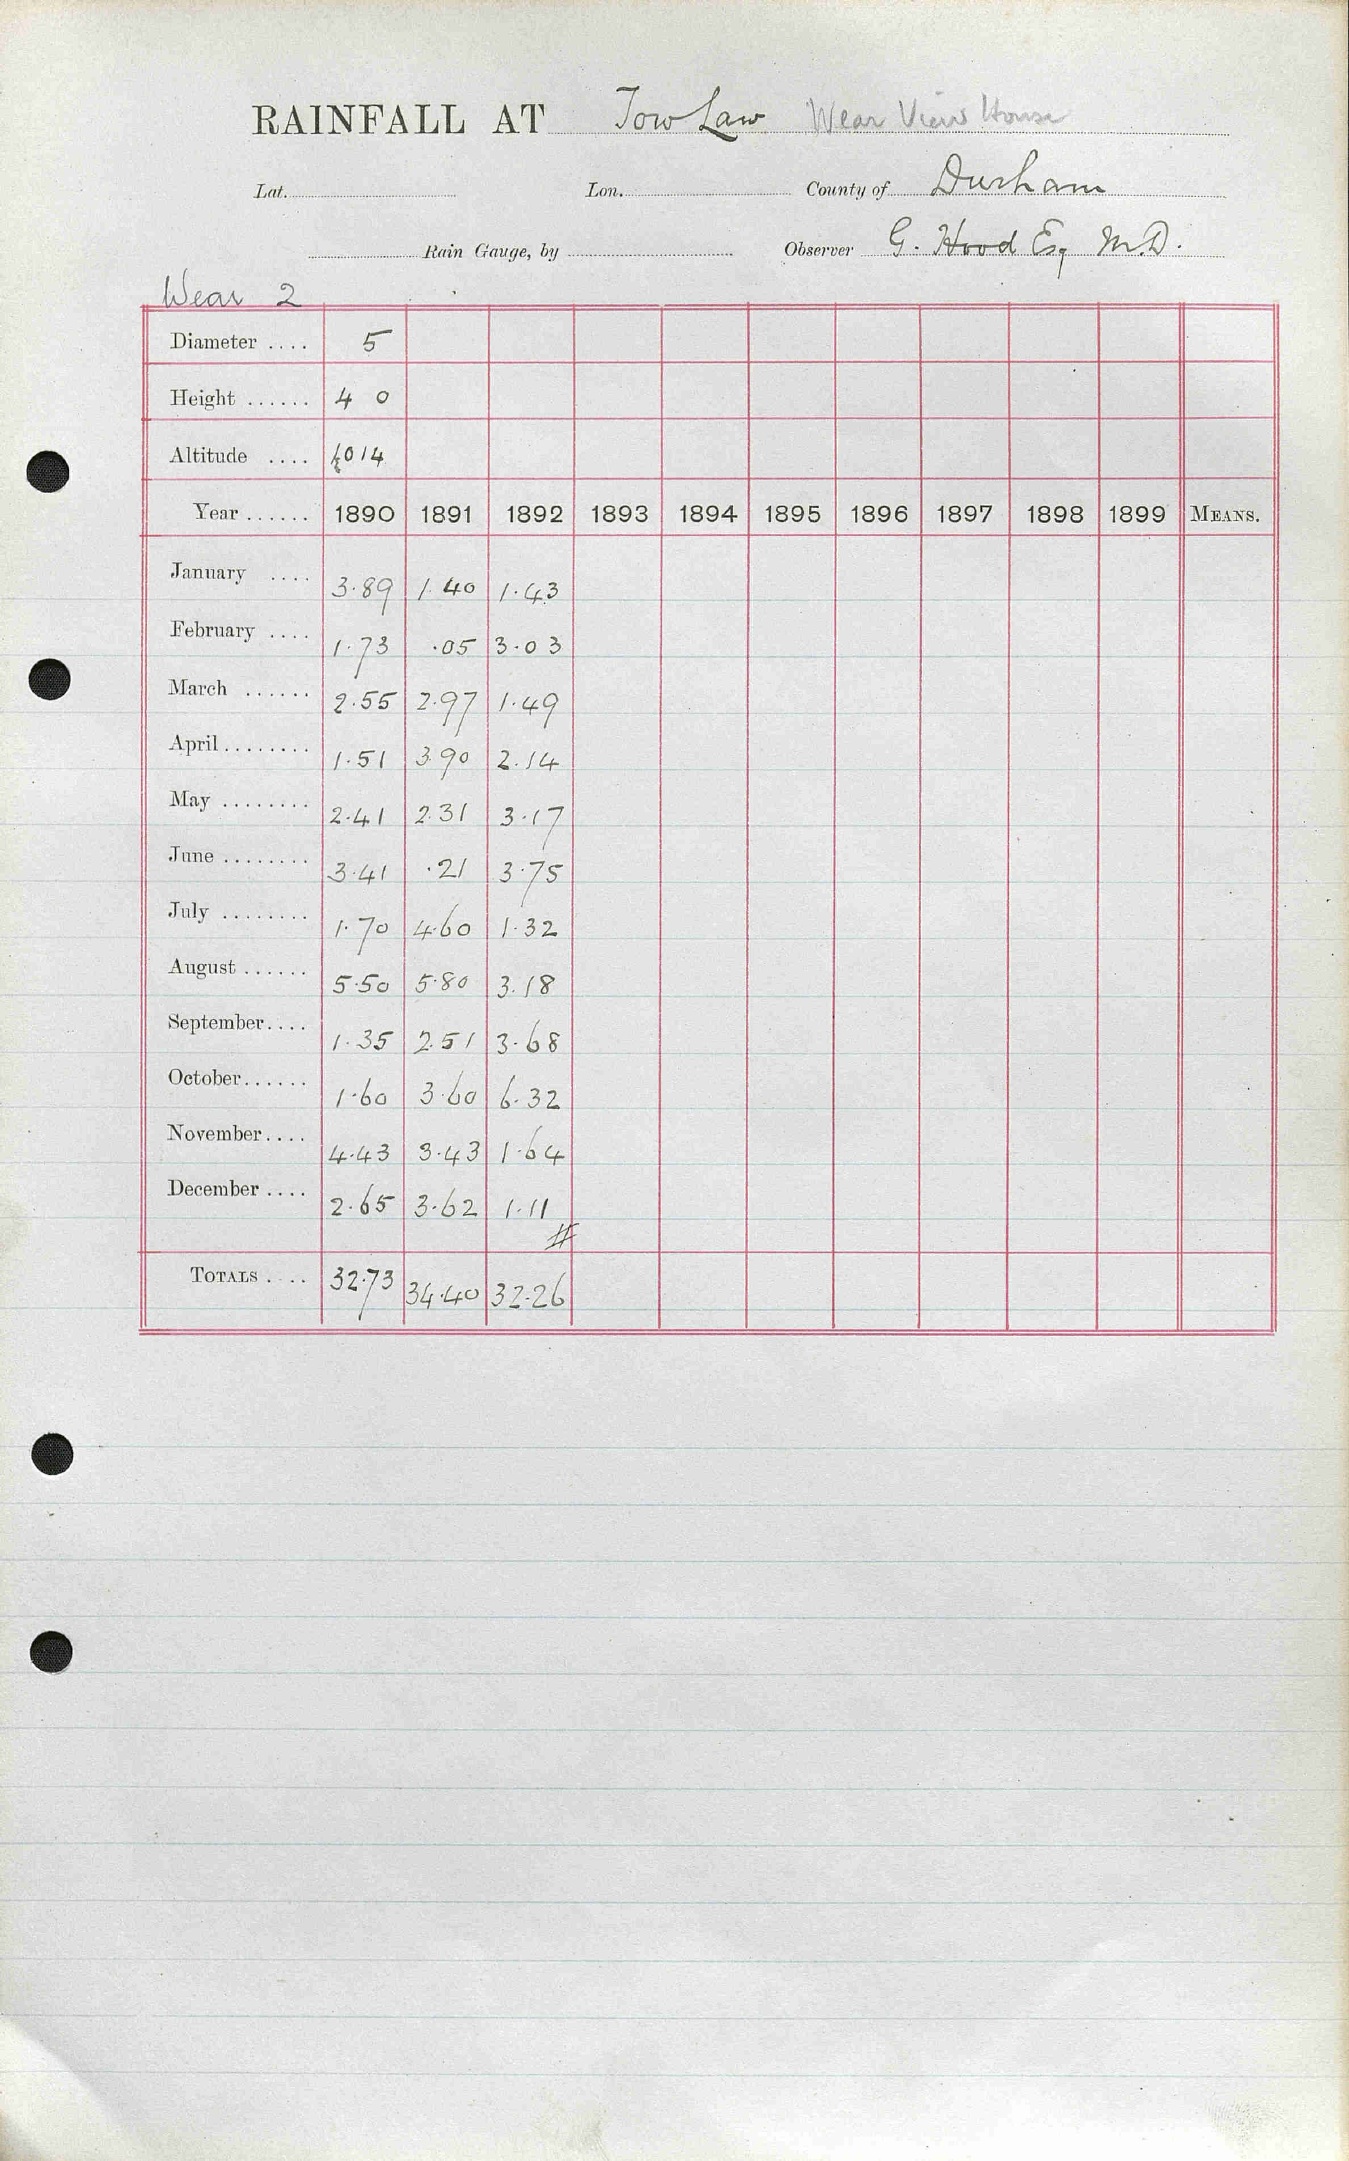 RAINFALL AT Tow Law Wear View House
Lat. Lon. County of Durham
Rain Gauge, by Observer G. Hood Esq M.D.
Wear 2
Diameter .... 5
Height ...... 4 0
Altitude .... 1014
Year ...... 1890 1891 1892 1893 1894 1895 1896 1897 1898 1899 MEANS.
January .... 3.89 1.40 1.43
February .... 1.73 .05 3.03
March ...... 2.55 2.97 1.49
April ........ 1.51 3.90 2.14
May ........ 2.41 2.31 3.17
June ........ 3.41 .21 3.75
July ........ 1.70 4.60 1.32
August ...... 5.50 5.80 3.18
September.... 1.35 2.51 3.68
October...... 1.60 3.60 6.32
November.... 4.43 3.43 1.64
December .... 2.65 3.62 1.11
#
TOTALS .... 32.73 34.40 32.26